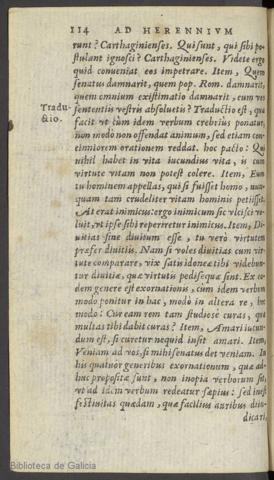 114 AD HERENNIVM
runt? Carthaginienses. Qui sunt, qui sibi po-
stulant ignosci? Carthaginienses. Videte ergo
quid conueniat eos impetrare. Item, Quem
senatus damnarit, quem pop. Rom. damnarit,
quem omnium existimatio damnarit, eum vos
sententiis vestris absoluetis? Traductio est, quæ
Tradu-
ctio.
facit vt cùm idem verbum crebrius ponatur,
non modò non offendat animum, sed etiam con-
cinniorem orationem reddat. hoc pacto: Qui
nihil habet in vita iucundius vita, is cum
virtute vitam non potest colere. Item, Eum
tu hominem appellas, qui si fuisset homo, nun-
quam tam crudeliter vitam hominis petiisset.
At erat inimicus: ergo inimicum sic vlcisci vo-
luit, vt ipse sibi reperiretur inimicus. Item, Di-
uitias sine diuitum esse, tu verò virtutem
præfer diuitiis. Nam si voles diuitias cum vir-
tute comparare, vix satis idoneæ tibi videbun-
tur diuitiæ, quæ virtutis pedisequæ sint. Ex eo-
dem genere est exornationis, cum idem verbum
modò ponitur in hac, modò in altera re, hoc
modo: Cur eam rem tam studiosè curas, quæ
multas tibi dabit curas? Item, Amari iucun-
dum est, si curetur nequid insit amari. Item,
Veniam ad vos, si mihi senatus det veniam. In
his quatuor generibus exornationum, quæ ad-
huc propositæ sunt, non inopia verborum fit,
vt ad idem verbum redeatur sæpius: sed inest
festiuitas quædam, quæ facilius auribus diiu-
dicari,
Biblioteca de Galicia